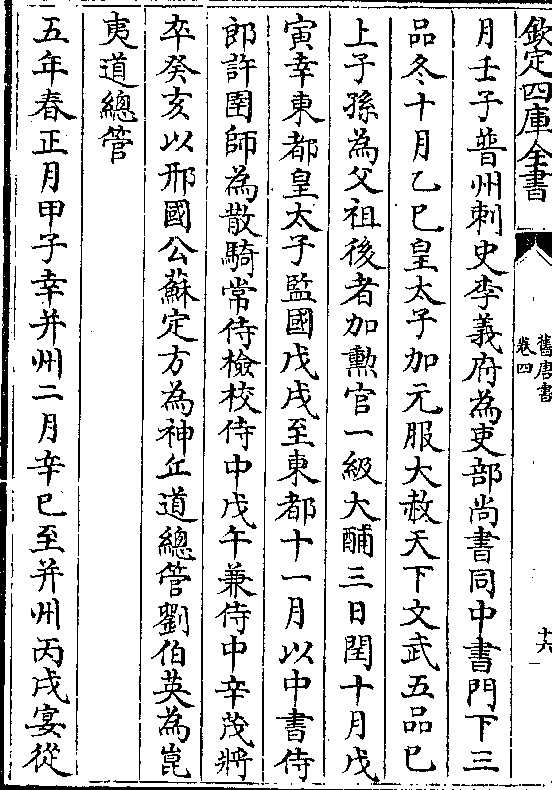 欽定四庫全書
舊唐書
卷四
十六
月壬子普州刺史李義府為吏部尚書同中書門下三
品冬十月乙巳皇太子加元服大赦天下文武五品已
上子孫為父祖後者加勲官一級大酺三日閏十月戊
寅幸東都皇太子監國戊戌至東都十一月以中書侍
郎許圉師為散騎常侍檢校侍中戊午兼侍中辛茂將
卒癸亥以邢國公蘇定方為神丘道總管劉伯英為崑
夷道總管
五年春正月甲子幸并州二月辛巳至并州丙戌宴從